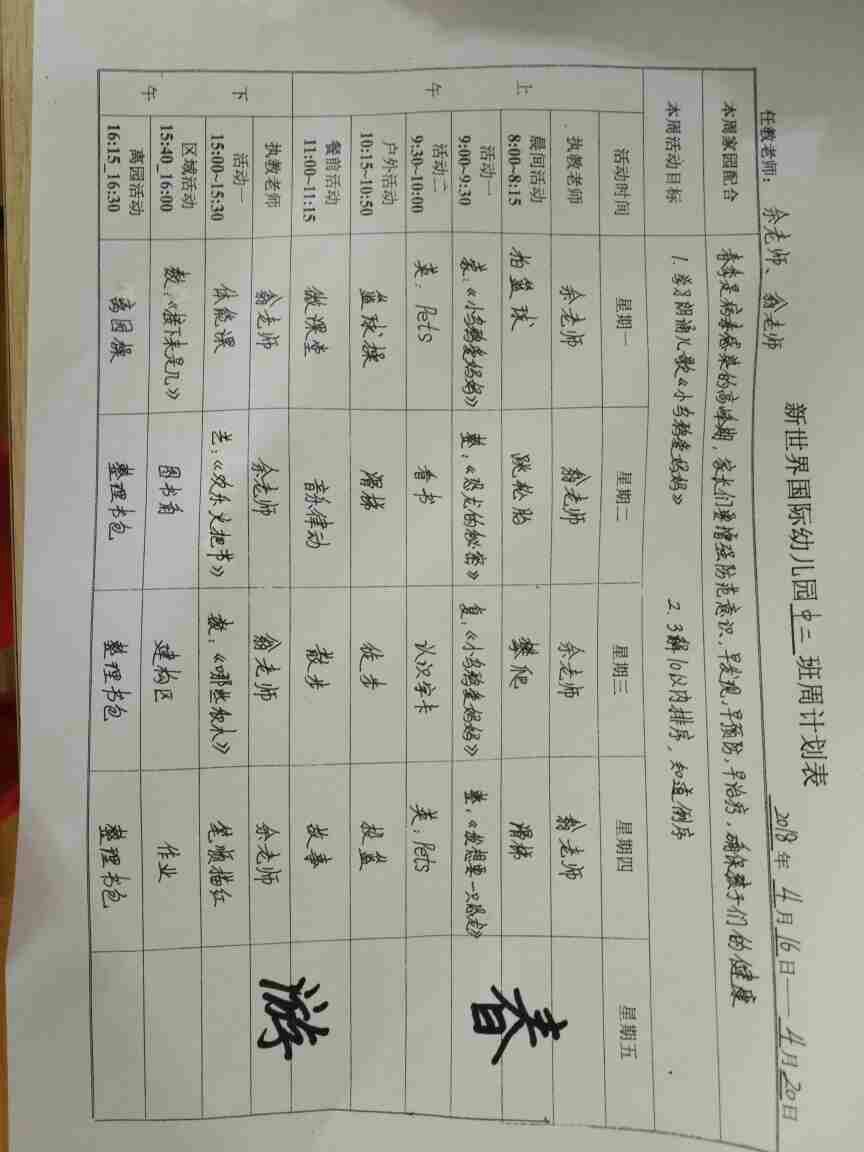 新世界国际幼儿园中二班周计划表
任教老师：余老师、翁老师 2018年4月16日——4月20日
本周家园配合 春季是病毒感染的高峰期，家长们要增强防范意识，早发现，早预防，早治疗，确保孩子们的健康
本周活动目标 1. 学习朗诵儿歌《小乌鸦爱妈妈》 2. 了解10以内排序，知道倒序
活动时间 星期一 星期二 星期三 星期四 星期五
上午
执教老师 余老师 翁老师 余老师 翁老师
晨间活动 8:00~8:15 拍篮球 跳轮胎 攀爬 滑梯
活动一 9:00~9:30 家：《小乌鸦爱妈妈》 整：《恐龙的秘密》 复：《小乌鸦爱妈妈》 整：《我想要一只恐龙》
活动二 9:30~10:00 英：Pets 看书 认识字卡 英：Pets
户外活动 10:15~10:50 篮球操 滑梯 徒步 投篮
餐前活动 11:00~11:15 微课堂 音乐律动 散步 故事
下午
执教老师 翁老师 余老师 翁老师 余老师
活动一 15:00~15:30 体能课 艺：《欢乐火把节》 数：《哪些积木》 笔顺描红
区域活动 15:40_16:00 数：《接下来是几》 图书角 建构区 作业
离园活动 16:15_16:30 离园操 整理书包 整理书包 整理书包
春游